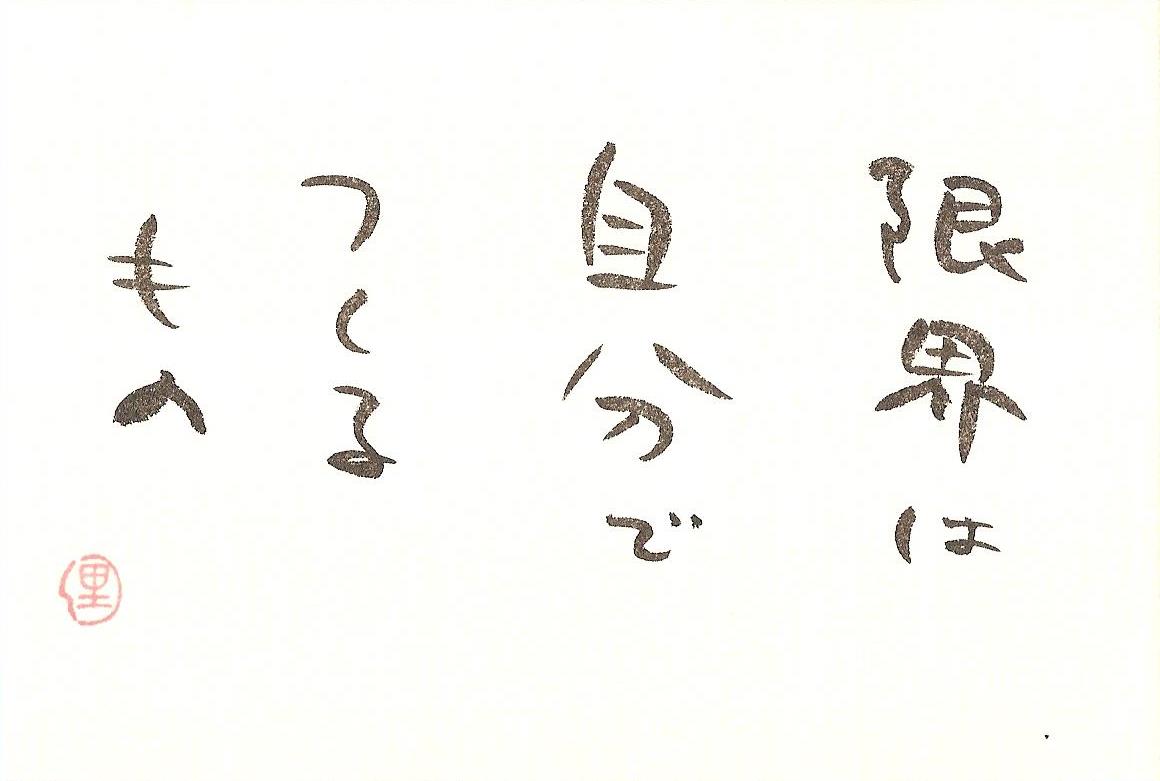 限界は
自分で
つくる
もの
里